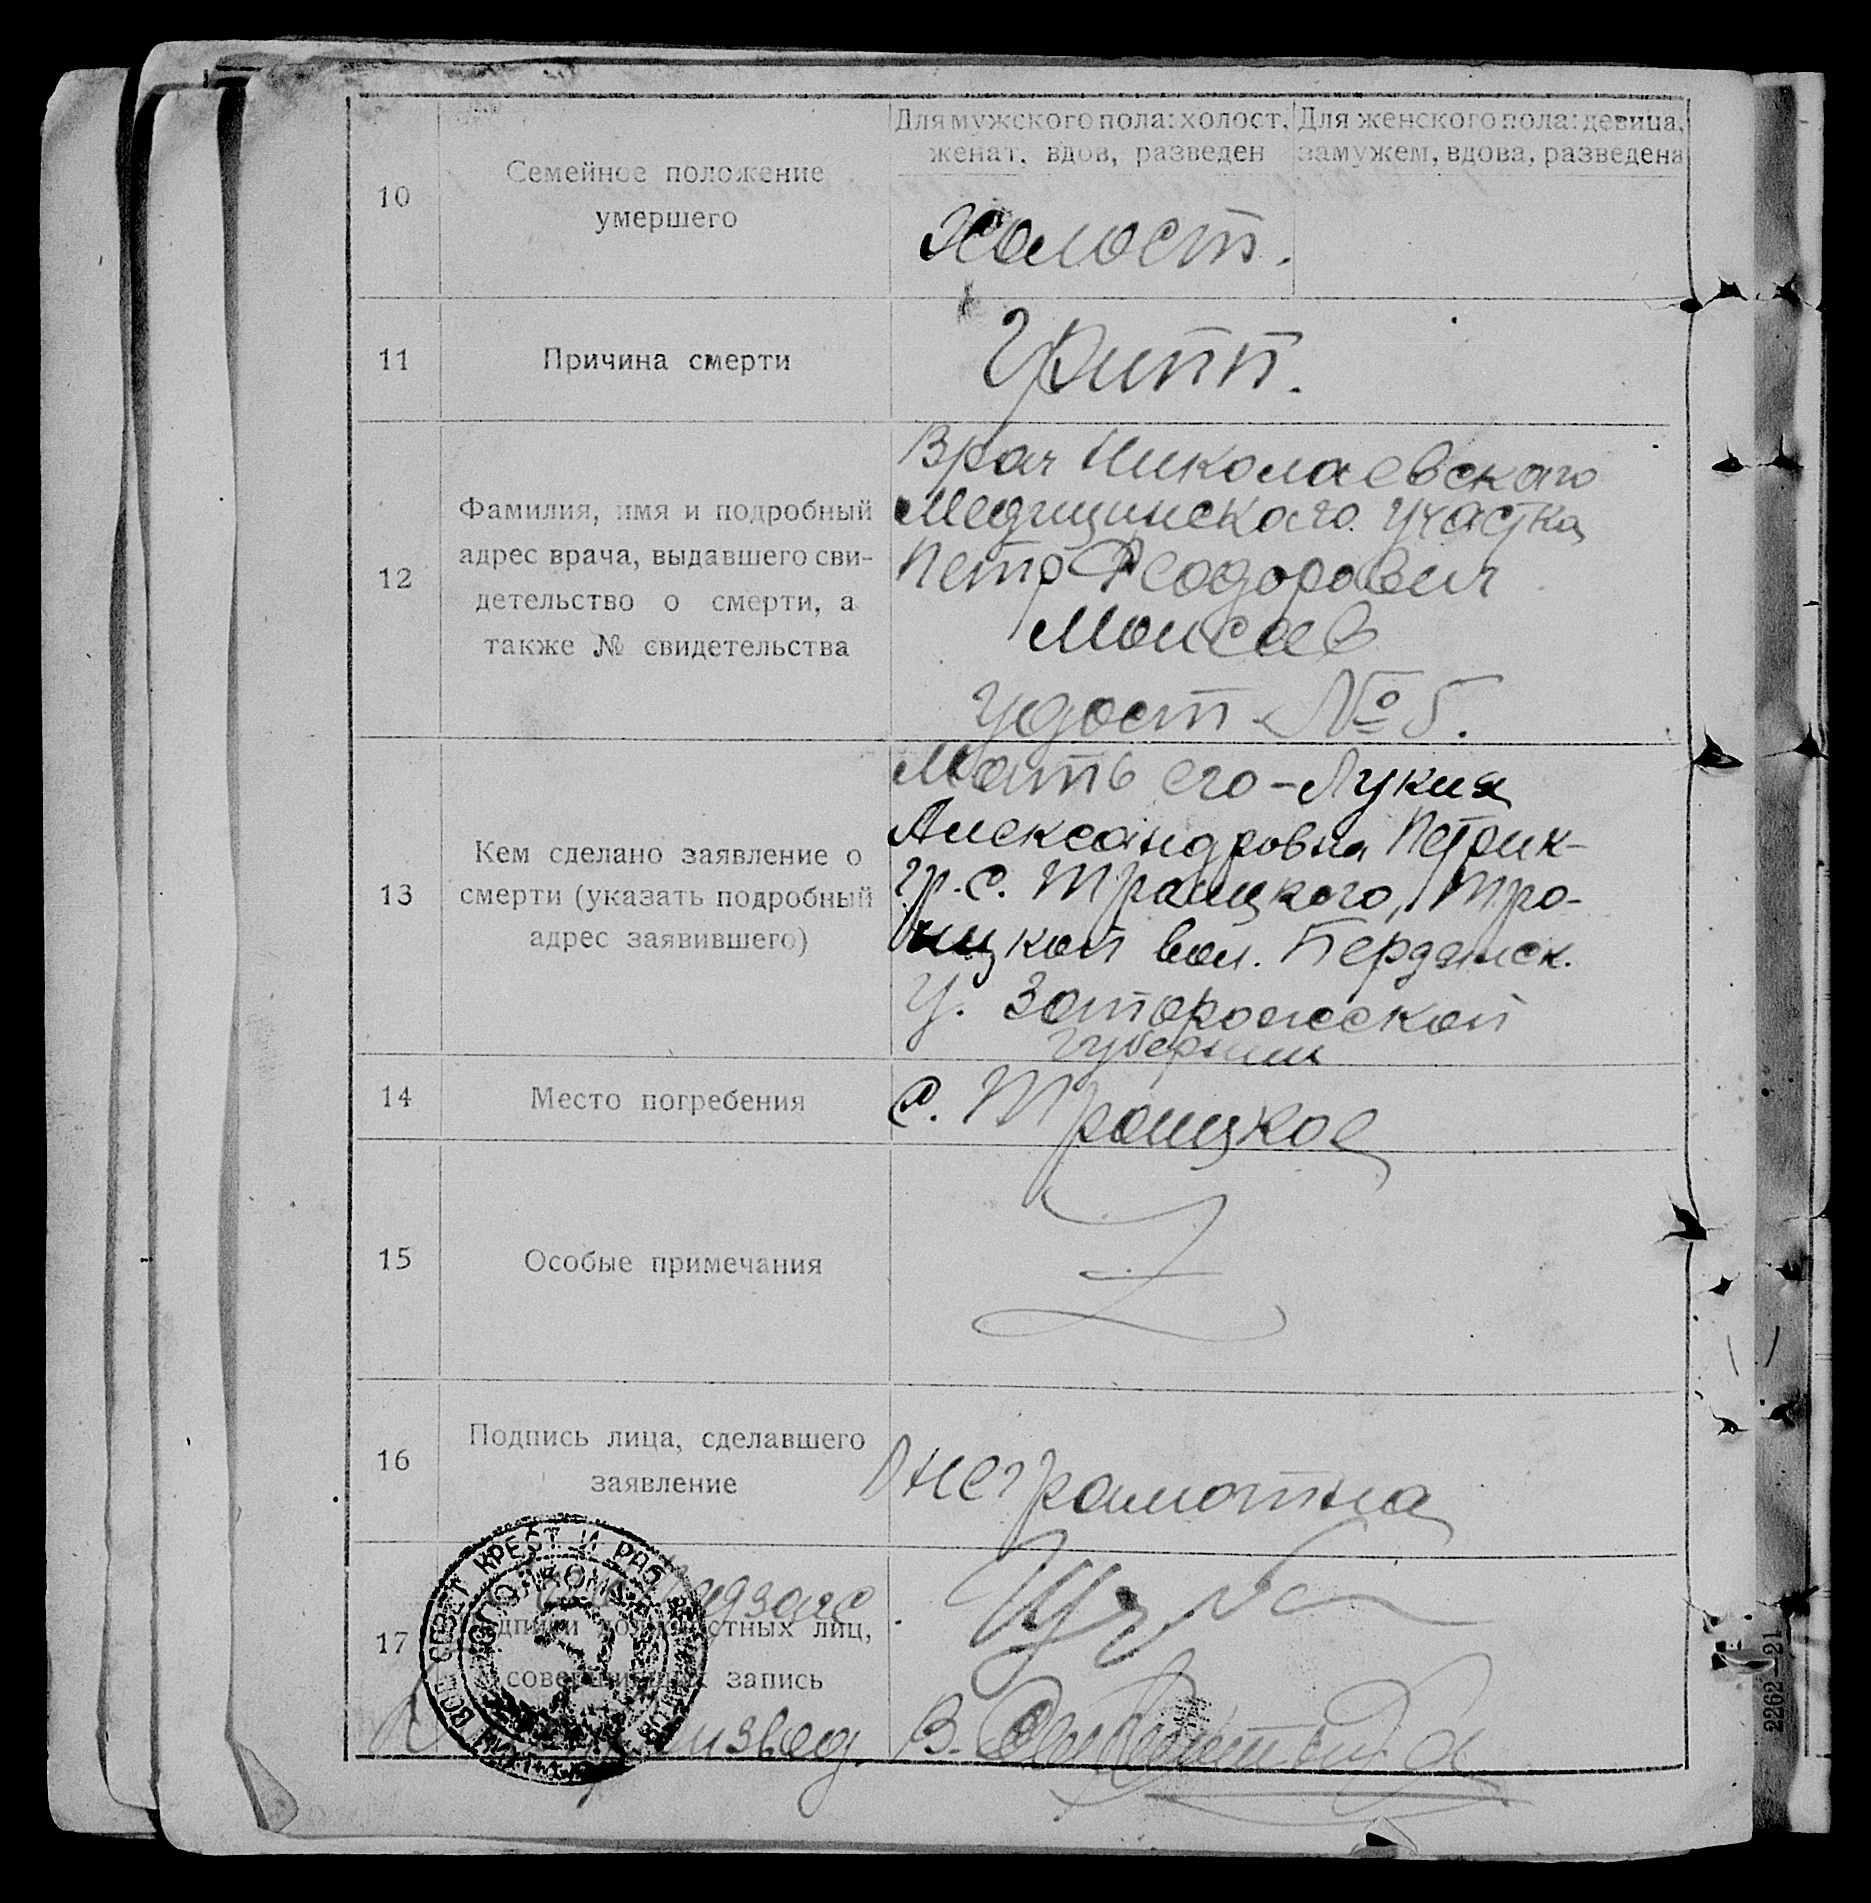 Для мужского пола: холост, женат, вдов, разведен
Для женского пола: девица, замужем, вдова, разведена
10
Семейное положение
умершего
холост.
11
Причина смерти
Грипп.
12
Фамилия, имя и подробный
адрес врача, выдавшего сви-
детельство о смерти, а
также № свидетельства
Врач Николаевского
Медицинского участка
Петр Феодорович
Моисеев
удост № 5.
13
Кем сделано заявление о
смерти (указать подробный
адрес заявившего)
Мать его - Лукия
Александровна Петрик-
гр. с. Троицкого, Тро-
ицкой вол. Бердянск.
у. Запорожской
губернии
14
Место погребения
с. Троицкое
15
Особые примечания
16
Подпись лица, сделавшего
заявление
неграмотна
17
Подписи должностных лиц,
совершивших запись
В.
СОВЕТ КРЕСТ И РАБ
ИСПОЛКОМ
2262-21